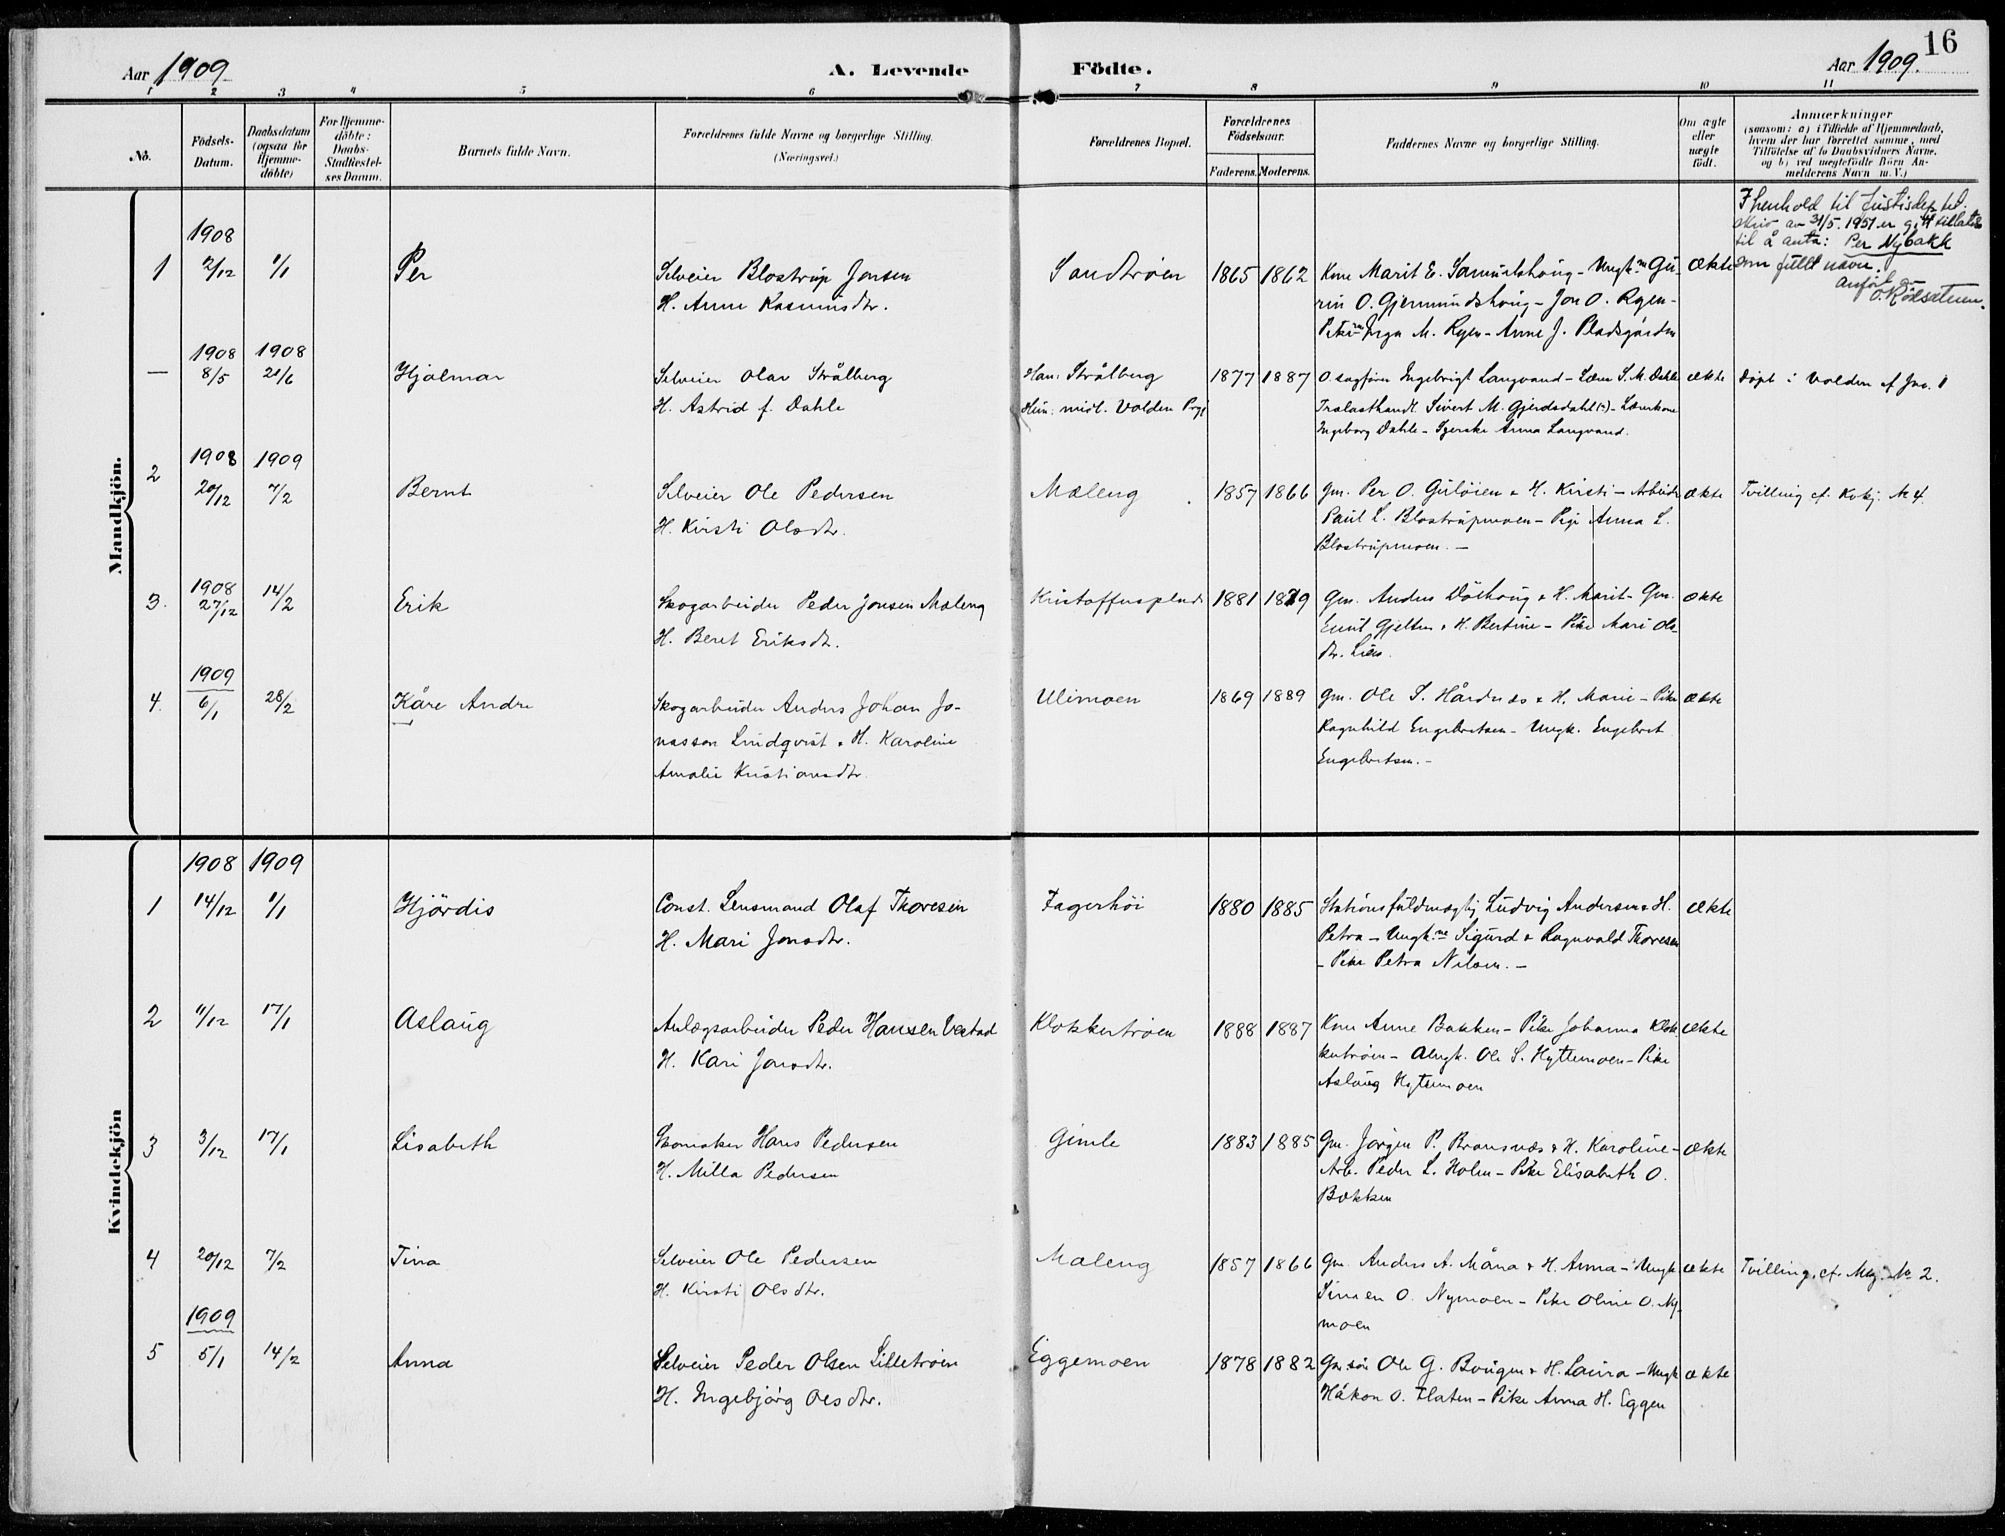 16
Aar 1909 A. Levende Födte. Aar 1909.
1 2 3 4 5 6 7 8 9 10 11
No.
Födsels-Datum.
Daabsdatum (ogsaa for Hjemme-döbte)
For Hjemme-döbte: Daabs-Stadfæstel-ses Datum.
Barnets fulde Navn.
Forældrenes fulde Navne og borgerlige Stilling. (Næringsvei.)
Forældrenes Bopæl.
Forældrenes Födselsaar.
Faderens. Moderens.
Faddernes Navne og borgerlige Stilling.
Om ægte eller uægte födt.
Anmærkninger
(saasom: a) i Tilfælde af Hjemmedaab,
hvem der har forrettet samme, med
Tilföielse af to Daabsvidners Navne.
og b) ved uegtefödte Börn An-
melderens Navn m. V.)
Mandkjön.
1908
1 2/12 1/1 Per Selveier Blostrup Jonsen Sandtrøen 1865 1862 Kone Marit E. Samuelshoug – Ungk. Gu- ækte
H. Anne Rasmusdtr. rin O. Gjermundshoug – Jon O. Ryen –
Inga M. Ryen – Anne J. Pladsgården
I henhold til Justisdep.
skriv av 31/5.1951 er gitt tillatelse
til å anta: Per Nybakk
som fullt navn.
Anført
1908 1908
— 8/5 21/6 Hjalmar Selveier Olav Strålberg Han: Strålberg 1877 1887 O.sagfører Ingebrigt Langvand – Lærer S. M. Dahle ækte Døpt i Volden cf Jno. 1
H. Astrid f. Dahle Hun: midl. Volden Prgj Tralasthandl. Sivert M. Gjerdsdahl – Lærerkone
Ingeborg Dahle – Anna Langvand.
1908 1909
2 20/12 7/2 Bernt Selveier Ole Pedersen Mæleng 1857 1866 Gm. Per O. Guløien & H. Kirsti – Arbeider ækte Tvilling cf. Kvkj. № 4.
H. Kirsti Olsdtr. Paul L. Blostrupmoen – Pige Anna L.
Blostrupmoen. –
1908
3. 27/12 14/2 Erik Skogarbeider Peder Jonsen Mæleng 1881 1879 Gm. Anders Døshoug & H. Marit – Gm. ækte
H. Beret Eriksdtr. Emil Gjelten & H. Bertine – Pike Mari Ols-
dtr. Lien.
1909
4. 6/1 28/2 Kåre Andre Skogarbeider Anders Johan Jo- Ulimoen 1869 1889 Gm. Ole S. Hårdnæs & H. Marie – Pike ækte
nasson Lindqvist & H. Karoline Ragnhild Engebretsen – Ungk. Engebret
Amalie Kristiansdtr. Engebretsen. –
Kvindekjön
1908 1909
1 14/12 1/1 Hjørdis Const. Lensmand Olaf Thoresen Fagerhøi 1880 1885 Stationsfuldmægtig Ludvig Andersen & H. ækte
H. Mari Jonsdtr. Petra – Ungk.ne Sigurd & Ragnvald Thoresen
– Pike Petra Nilsen. –
2 11/12 17/1 Aslaug Anlægsarbeider Peder Hansen Vestad Klokkertrøen 1888 1887 Kone Anne Bakken – Pike Johanna Klok- ækte
H. Kari Jonsdtr. kertrøen – Ungk. Ole S. Hyttemoen – Pike
Aslaug Hyttemoen
3 3/12 17/1 Lisabeth Skomaker Hans Pedersen Gimle 1883 1885 Gm. Jørgen P. Bransnæs & H. Karoline – ækte
H. Milla Pedersen Arb. Peder L. Holm – Pike Elisabeth O.
Bækken
4 20/12 7/2 Tina Selveier Ole Pedersen Mæleng 1857 1866 Gm. Anders A. Måna & H. Anna – Ungk ækte Tvilling. cf. Mkj. № 2.
H. Kirsti Olsdtr. Simen O. Nymoen – Pike Oline O. Ny-
moen
1909
5 5/1 14/2 Anna Selveier Peder Olsen Lilletrøen Eggemoen 1878 1882 Ole G. Bougen & H. Laura – Ungk ækte
H. Ingebjørg Olsdtr. Håkon O. Flaten – Pike Anna H. Eggen